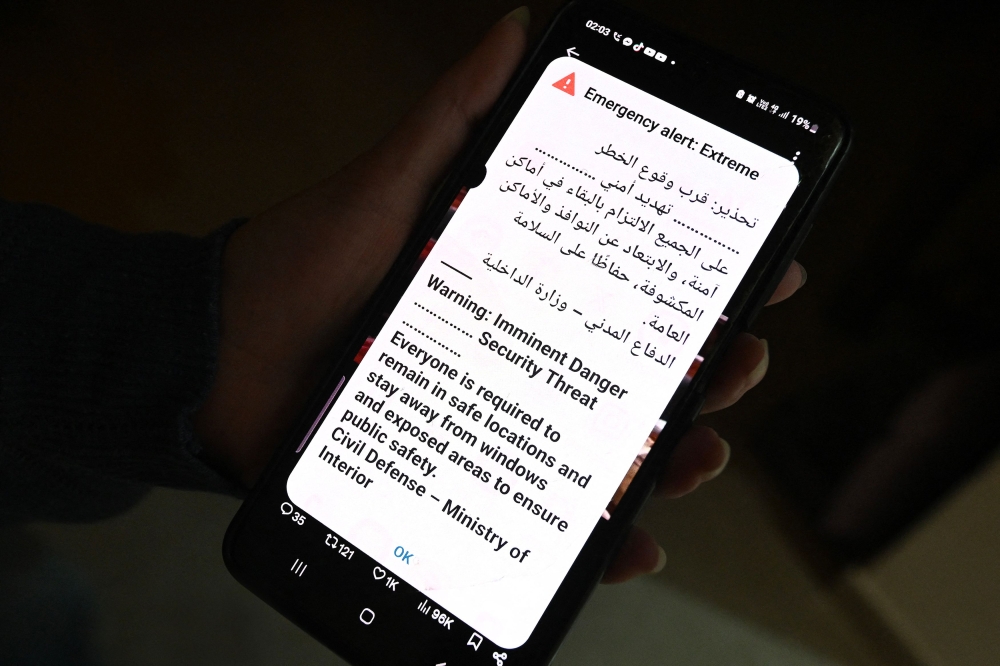 02:03
19%
Emergency alert: Extreme
تحذير: قرب وقوع الخطر
.............. تهديد أمني ..............
على الجميع الالتزام بالبقاء في أماكن
آمنة، والابتعاد عن النوافذ والأماكن
المكشوفة، حفاظًا على السلامة
العامة.
الدفاع المدني – وزارة الداخلية
Warning: Imminent Danger
.............. Security Threat
..............
Everyone is required to
remain in safe locations and
stay away from windows
and exposed areas to ensure
public safety.
Civil Defense – Ministry of
Interior
OK
35
121
1K
96K